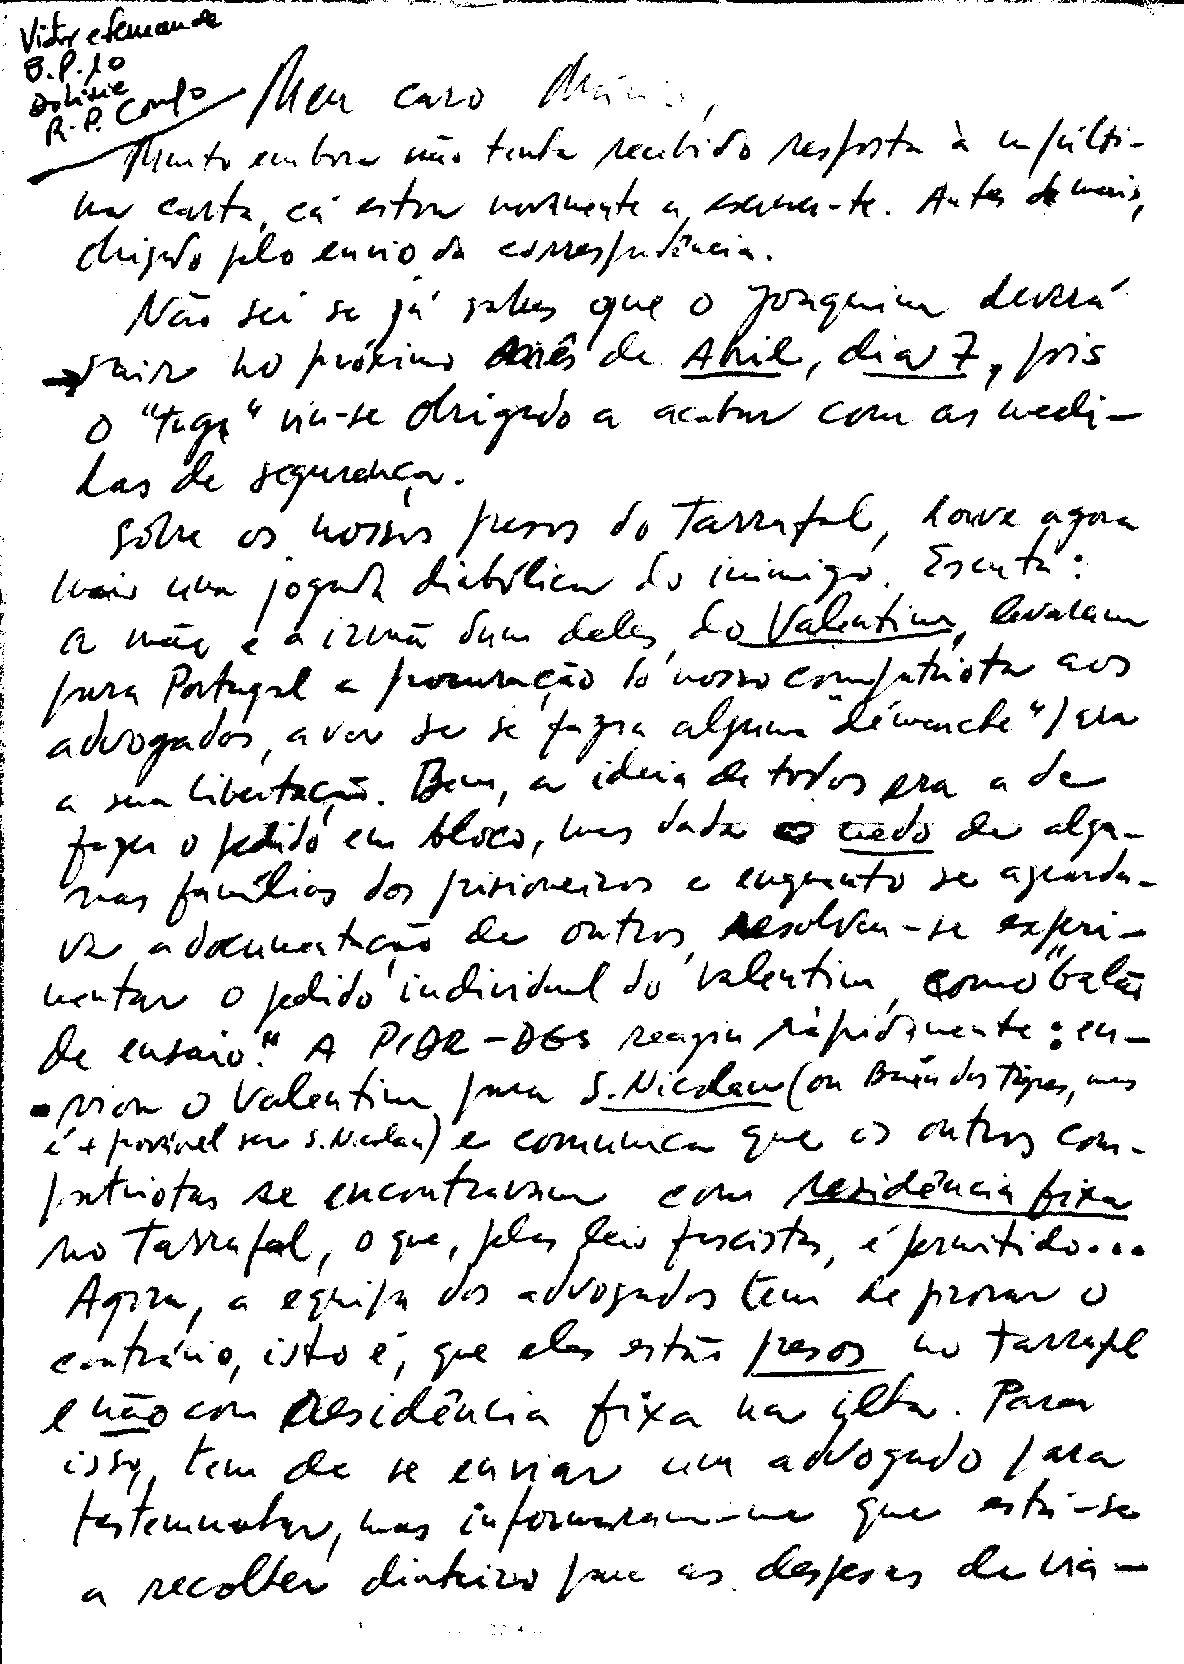 Victor e Fernanda
B.P. 10
Dolisie
R. P. Congo
Meu caro Mário,
Muito embora não tenha recebido resposta à m/ últi-
ma carta, cá estou novamente a escrever-te. Antes de mais,
obrigado pelo envio da correspondência.
Não sei se já sabes que o Joaquim deverá
sair no próximo mês de Abril, dia 7, pois
o "tuga" viu-se obrigado a acabar com as medi-
das de segurança.
Sôbre os nossos presos do Tarrafal, houve agora
mais uma jogada diabólica do inimigo. Escuta:
a mãe e a irmã dum deles, do Valentim, levaram
para Portugal a procuração do nosso compatriota aos
advogados, a ver se se fazia alguma "démarche" para
a sua libertação. Bem, a ideia de todos era a de
fazer o pedido em bloco, mas dado o medo de algu-
mas famílias dos prisioneiros e enquanto se aguarda-
va a documentação de outros, resolveu-se experi-
mentar o pedido individual do Valentim, como "balão
de ensaio". A PIDE-DGS reagiu ràpidamente: en-
viou o Valentim para S. Nicolau (ou Baía dos Tigres, mas
é + provável ser S. Nicolau) e comunica que os outros com-
patriotas se encontravam com residência fixa
no Tarrafal, o que, pelas leis fascistas, é permitido...
Agora, a equipa dos advogados tem de provar o
contrário, isto é, que eles estão presos no Tarrafal
e não com residência fixa na ilha. Para
isso, tem de se enviar um advogado para
testemunhar, mas informaram-me que está-se
a recolher dinheiro para as despesas de via-